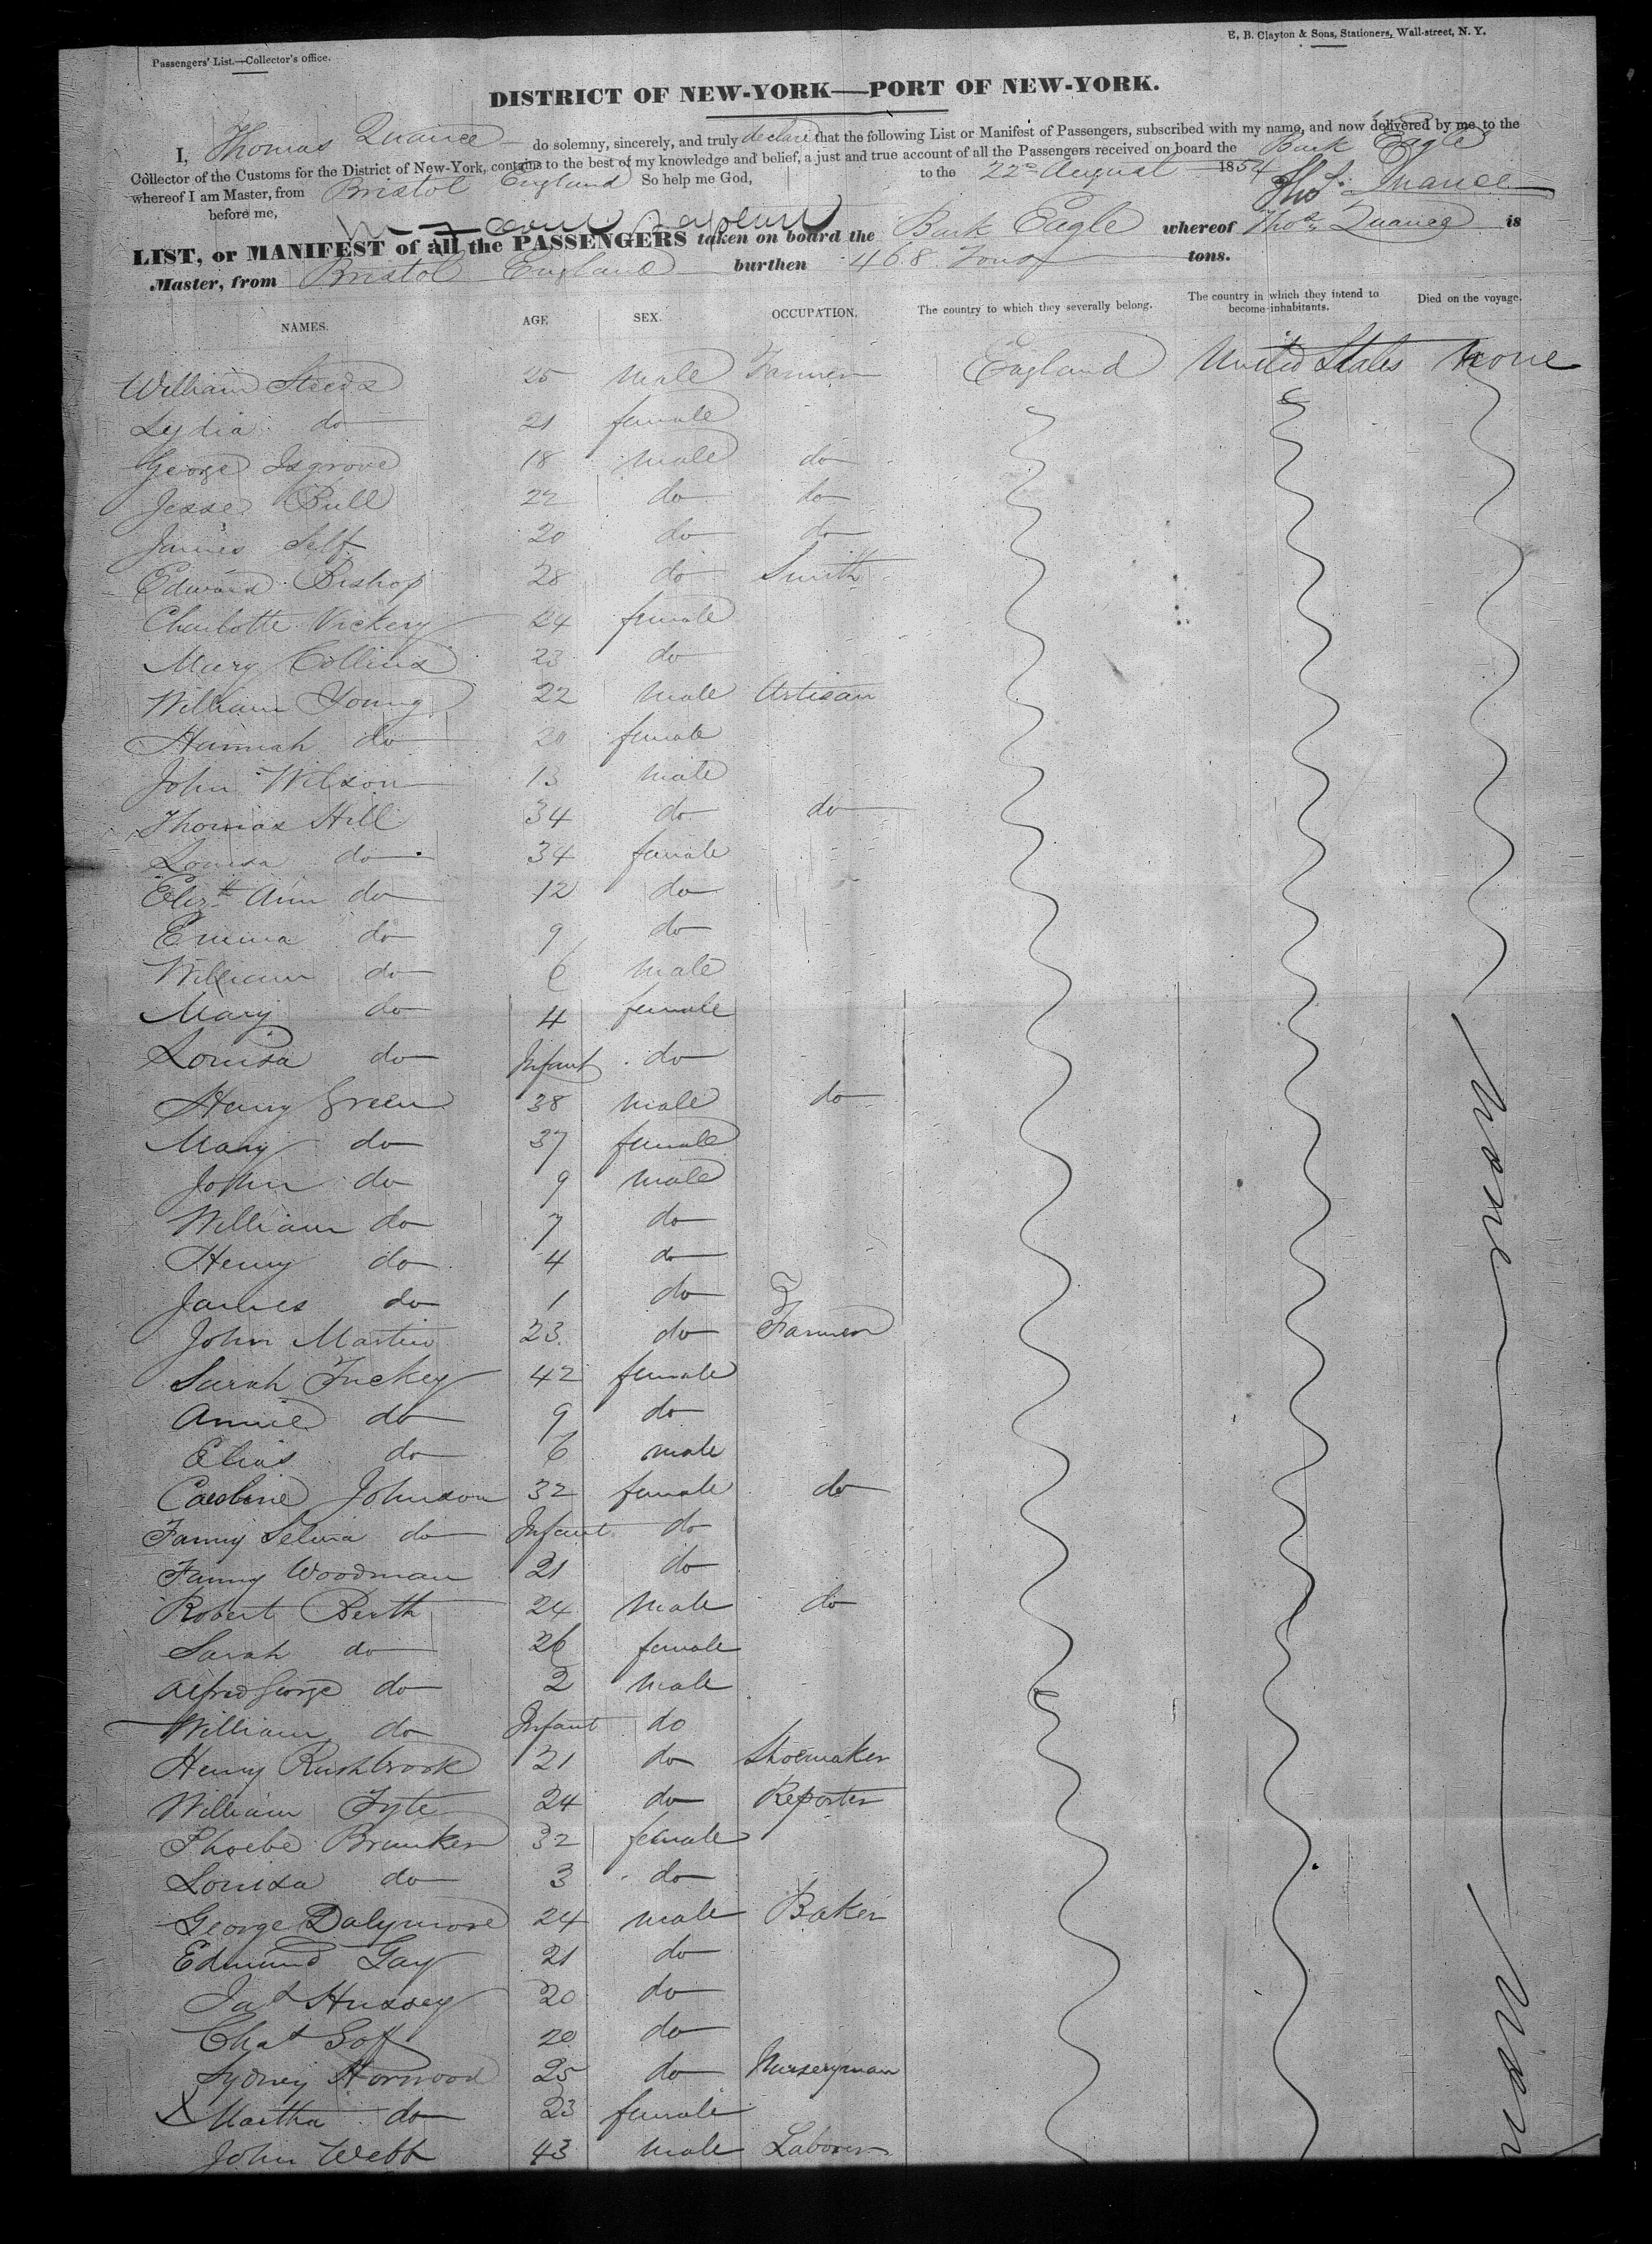 Passengers' List.—Collector's office.
E. B. Clayton & Sons, Stationers, Wall-street, N. Y.
DISTRICT OF NEW-YORK—PORT OF NEW-YORK.
I, Thomas Quance do solemny, sincerely, and truly declare that the following List or Manifest of Passengers, subscribed with my name, and now delivered by me to the
Collector of the Customs for the District of New-York, contains to the best of my knowledge and belief, a just and true account of all the Passengers received on board the Bark Eagle
whereof I am Master, from Bristol England So help me God, to the 22nd August 1854
before me, Thos. Quance
LIST, or MANIFEST of all the PASSENGERS taken on board the Bark Eagle whereof Thos. Quance is
Master, from Bristol England burthen 468 Tons tons.
NAMES. AGE SEX. OCCUPATION. The country to which they severally belong. The country in which they intend to become inhabitants. Died on the voyage.
William Steeds 25 male Farmer England United States None
Lydia do 21 female
George Isgrove 18 male do
Jesse Bull 22 do do
James Self 20 do do
Edward Bishop 28 do Smith
Charlotte Vickery 24 female
Mary Collins 23 do
William Young 22 male Artisan
Hannah do 20 female
John Wilson 13 male
Thomas Hill 34 do do
Louisa do 34 female
Elizth Ann do 12 do
Emma do 9 do
William do 6 male
Mary do 4 female
Louisa do Infant do
Henry Green 38 male do
Mary do 37 female
John do 9 male
William do 7 do
Henry do 4 do
James do 1 do
John Martin 23 do Farmer
Sarah Tuckey 42 female
Annie do 9 do
Elias do 6 male
Caroline Johnson 32 female do
Fanny Selina do Infant do
Fanny Woodman 21 do
Robert Berth 24 male do
Sarah do 26 female
Alfred George do 2 male
William do Infant do
Henry Rushbrook 21 do Shoemaker
William Fyte 24 do Reporter
Phoebe Brunker 32 female
Louisa do 3 do
George Dalymore 24 male Baker
Edmund Gay 21 do
Jas Hussey 20 do
Chas 20 do
Sydney Horwood 25 do Nurseryman
X Martha do 23 female
John Webb 43 male Laborer
None